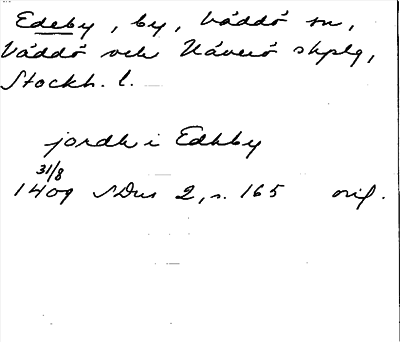 Edeby, by, Väddö sn,
Väddö och Häverö skplg,
Stockh. l.
jordh i Edhby
31/8
1409 SDns 2, s. 165 orig.